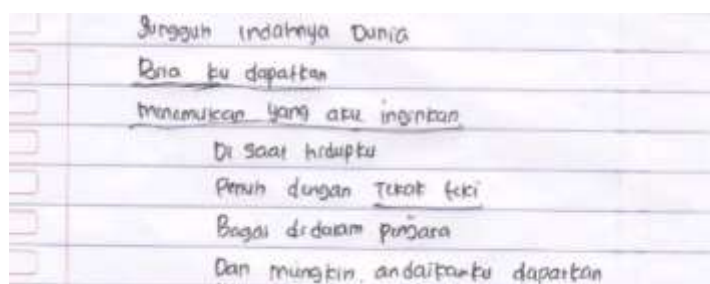 Sungguh indahnya Dunia
Bila ku dapatkan
menemukan yang aku inginkan
Di saat hidupku
Penuh dengan Tekat teki
Bagai didalam penjara
Dan mungkin andaikanku dapatkan